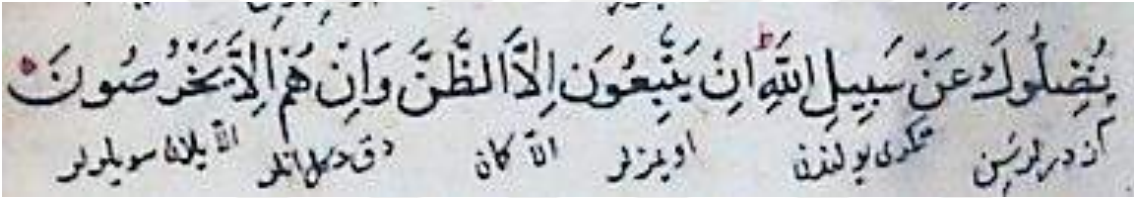 يُضِلُّوكَ عَنْ سَبِيلِ اللّٰهِ اِنْ يَتَّبِعُونَ اِلاَّ الظَّنَّ وَاِنْ هُمْ اِلاَّ يَخْرُصُونَ
تكرى يولندن اويمزلر الّا كمان دق دكل انلر الّا يلان سويلرلر